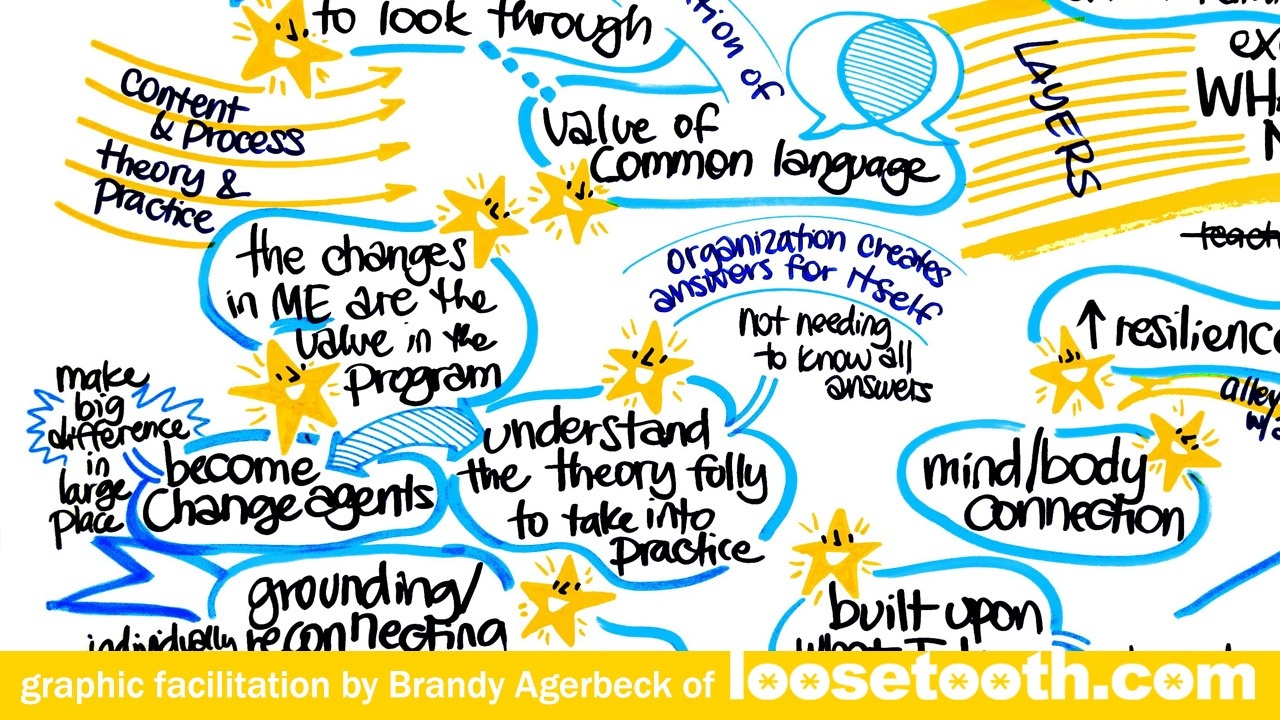 to look through
tion of
Content
& Process
theory &
Practice
Value of
Common language
LAYERS
the changes
in ME are the
value in the
program
organization creates
answers for itself
not needing
to know all
answers
↑ resilience
make
big
difference
in
large
place
become
Change agents
understand
the theory fully
to take into
practice
mind/body
connection
grounding/
individually reconnecting
built upon
graphic facilitation by Brandy Agerbeck of loosetooth.com